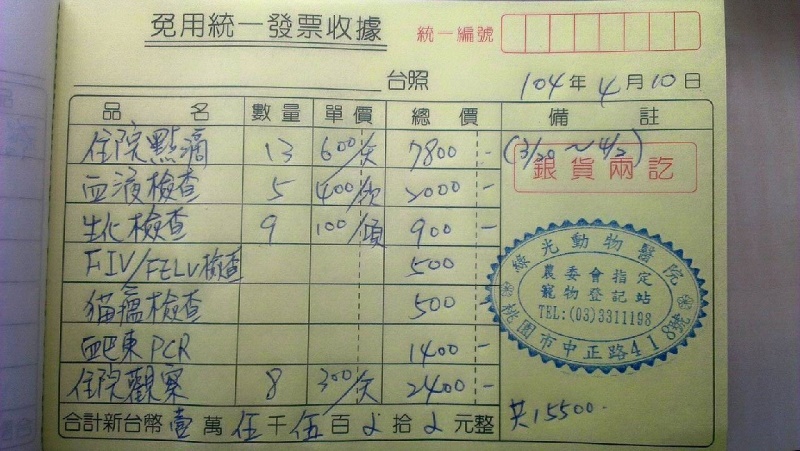 免用統一發票收據
統一編號
台照
104年4月10日
品名 數量 單價 總價 備註
住院點滴 13 600/天 7800- (3/20~4/2)
銀貨兩訖
血液檢查 5 400/次 2000-
生化檢查 9 100/項 900-
FIV/FELV檢查 500
貓瘟檢查 500
血巴東PCR 1400-
住院觀察 8 300/天 2400-
綠光動物醫院
農委會指定
寵物登記站
TEL:(03)3311198
桃園市中正路418號
共15500.
合計新台幣壹萬伍千伍百 拾 元整